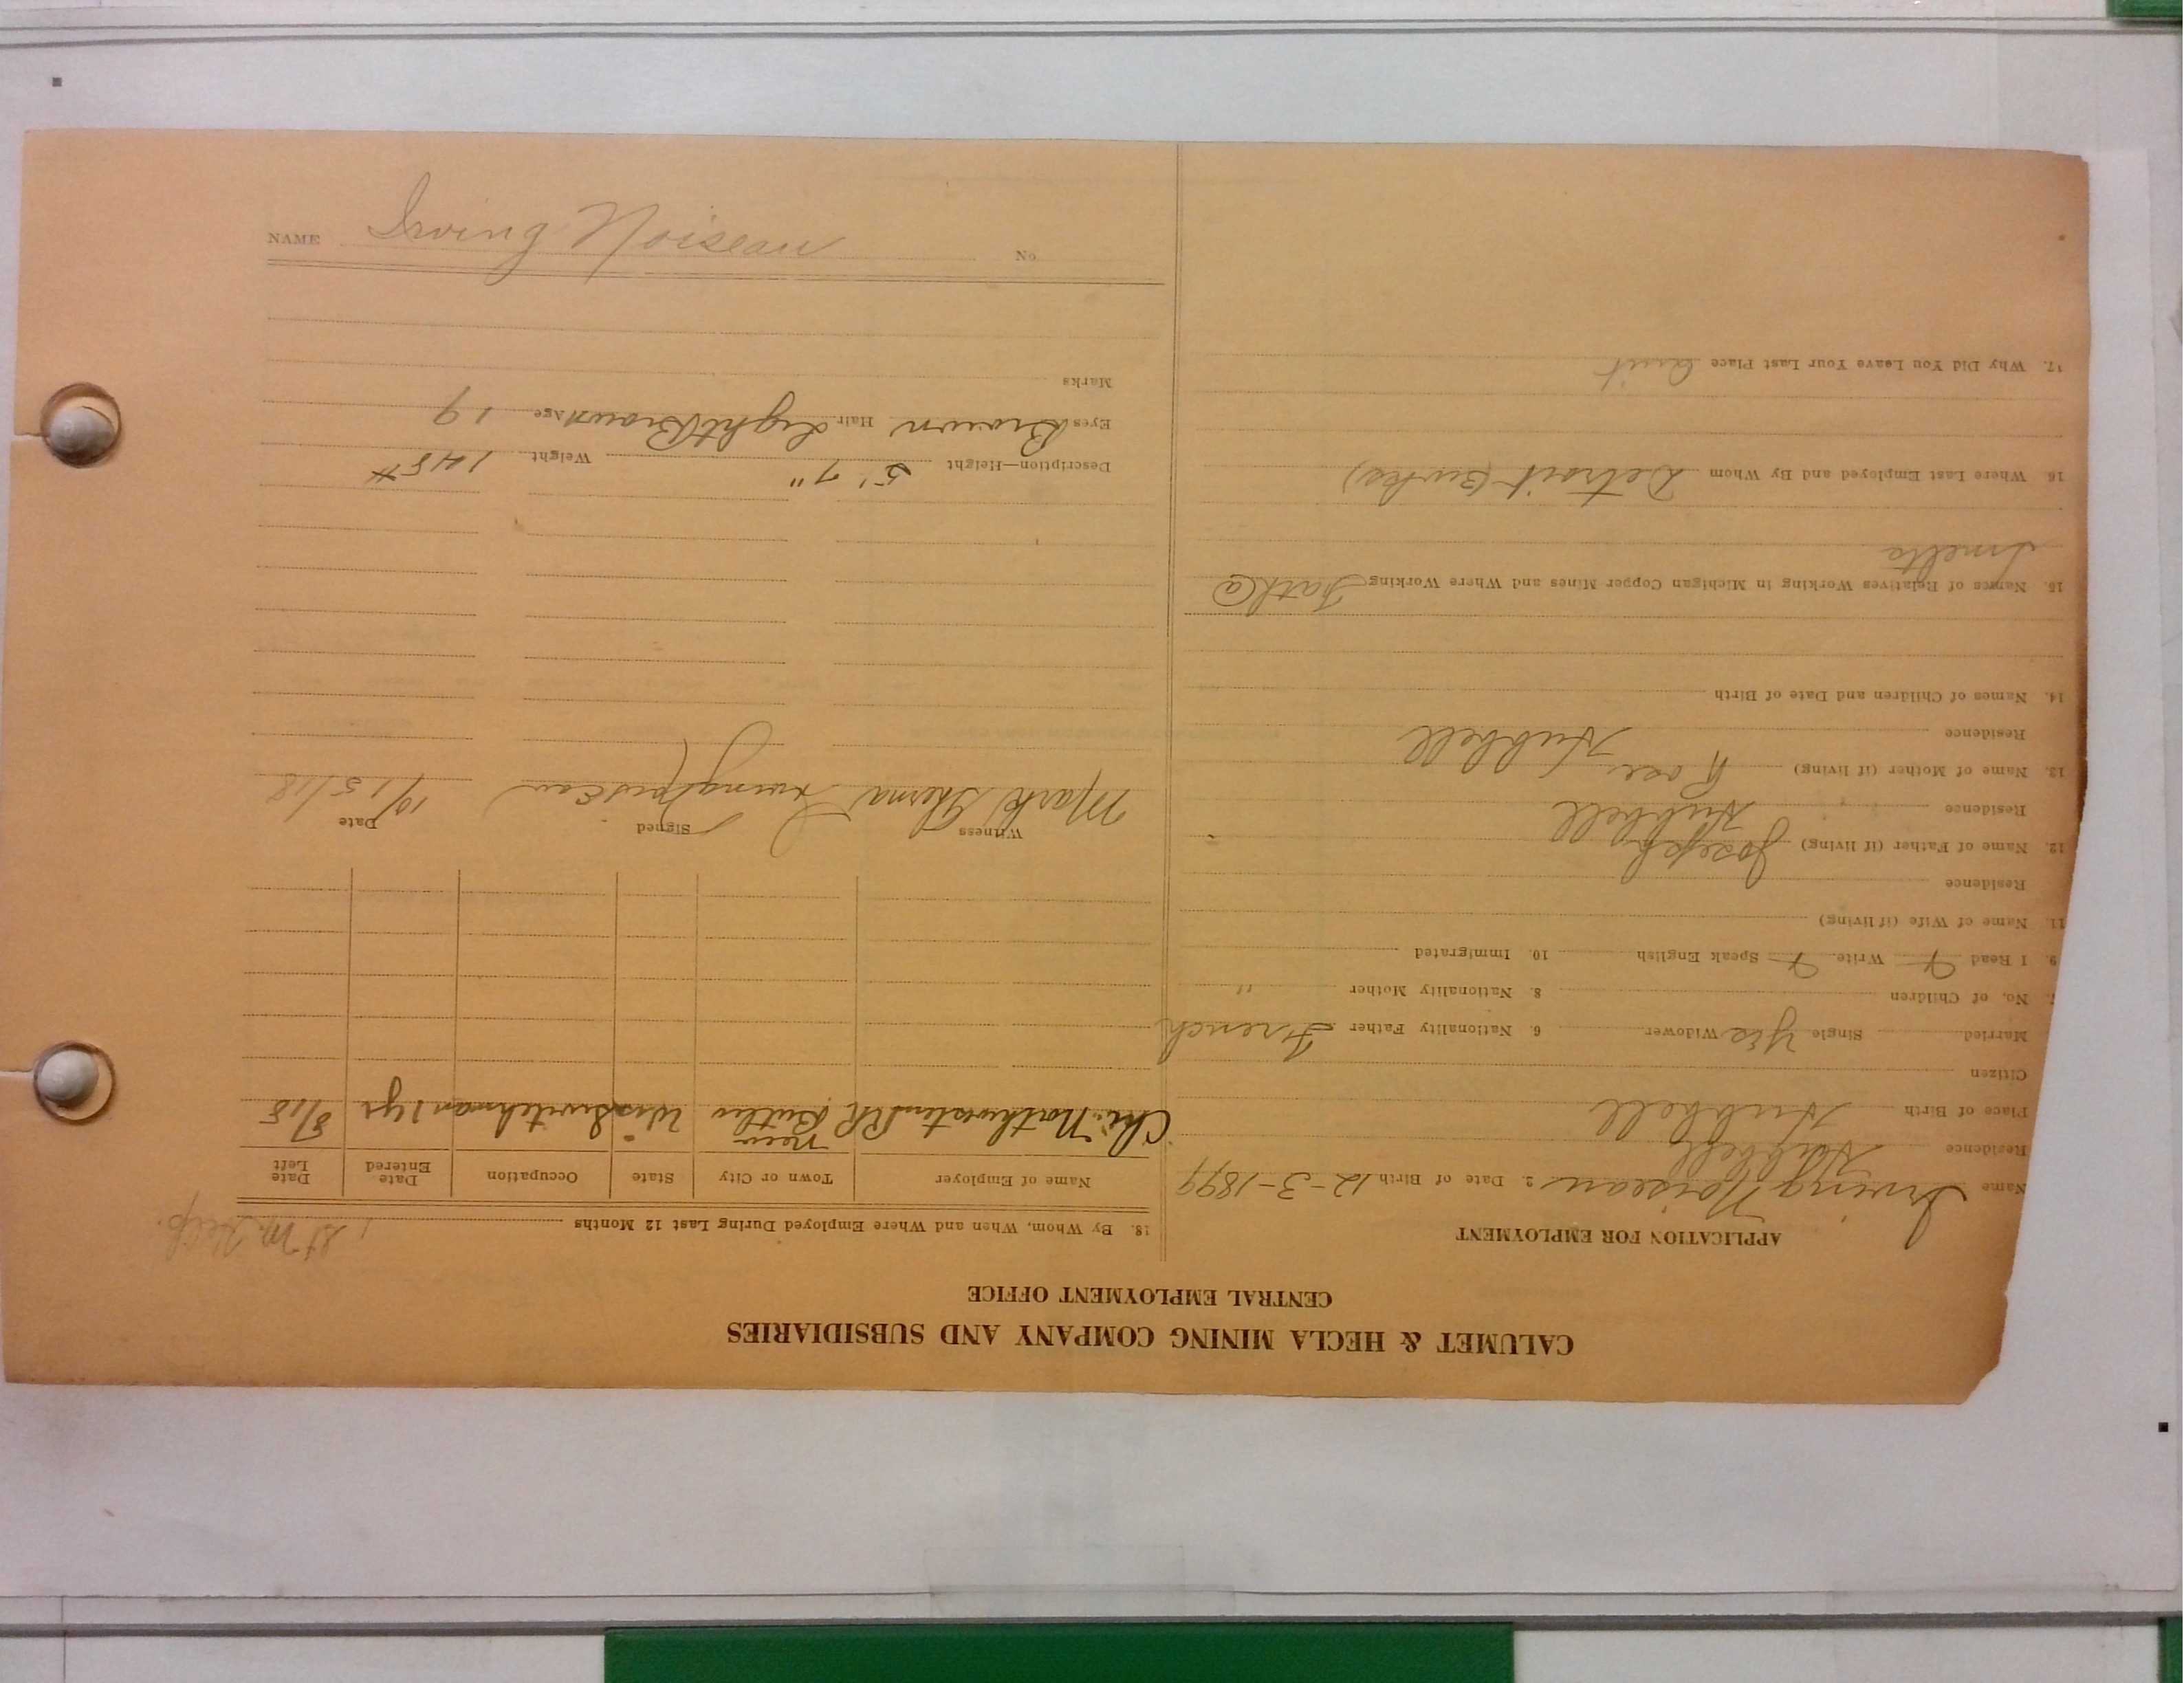 CALUMET & HECLA MINING COMPANY AND SUBSIDIARIES
CENTRAL EMPLOYMENT OFFICE
APPLICATION FOR EMPLOYMENT
Name Irving Noiseau 2. Date of Birth 12-3-1899
Residence Hubbell
Place of Birth Hubbell
Citizen
Married Single Yes Widower 6. Nationality Father French
7. No. of Children 8. Nationality Mother "
9. I Read Write Speak English 10. Immigrated
11. Name of Wife (if living)
Residence
12. Name of Father (if living) Joseph
Residence Hubbell
13. Name of Mother (if living) Rose
Residence Hubbell
14. Names of Children and Date of Birth
15. Names of Relatives Working in Michigan Copper Mines and Where Working Fath @
Smelta
16. Where Last Employed and By Whom Detroit
17. Why Did You Leave Your Last Place Quit
18. By Whom, When and Where Employed During Last 12 Months
Name of Employer Town or City State Occupation Date Entered Date Left
Chi. Northwestern RR near Butler Wis Switchman 1 yr 8/18
Witness Signed Date
Mark Irving Noiseau 10/15/18
Description—Height 5' 7" Weight 145#
Eyes Brown Hair Light Brown Age 19
Marks
NAME Irving Noiseau No.